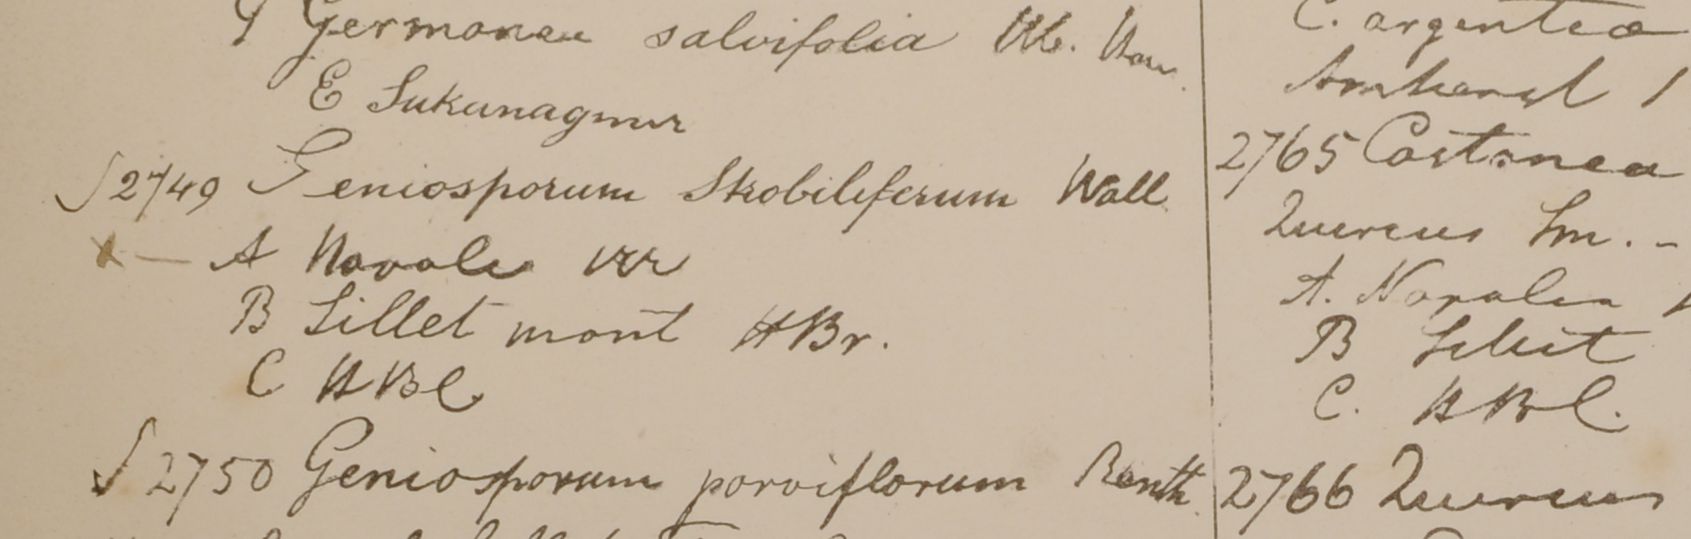 Germanea salvifolia
E Sukanagur
2749 Geniosporum Strobiliferum Wall
A Napale
B Sillet mont HBr.
C HBC
2750 Geniosporum parviflorum Benth
C. argentea
Amherst
2765 Castanea
Quercus Sm. -
A. Napalia
B Silhet
C. HBC.
2766 Quercus